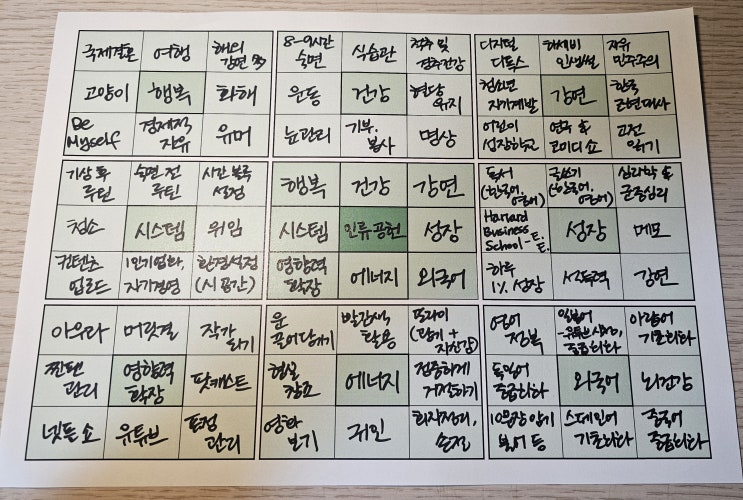 국제결혼 여행 해외 강연
고양이 행복 화해
Be Myself 경제적 자유 유머
8-9시간 숙면 식습관 척추 및 관주건강
운동 건강 현당 유지
눈관리 기부, 봉사 명상
디지털 디톡스 허세비 인생썰 자유 민주주의
청소년 자기계발 강연 한국 근현대사
어린이 성장학교 연주 & 코미디 쇼 고전 읽기
기상 후 루틴 숙면 전 루틴 시간 블록 설정
청소 시스템 위임
컨텐츠 업로드 1인기업화, 자기경영 환경설정 (시공간)
행복 건강 강연
시스템 인류공헌 성장
영향력 확장 에너지 외국어
독서 (한국어, 영어) 글쓰기 (한국어, 영어) 심리학 & 군중심리
Harvard Business School-E.E. 성장 메모
하루 1% 성장 설득력 강연
아우라 머릿결 작가 되기
찐팬 관리 영향력 확장 팟캐스트
넷튼쇼 유튜브 표정 관리
운 끌어당기기 빨간색 착용
현실 창조 에너지 정중하게 거절하기
영화 보기 귀인
영어 정복 중급회화 아랍어 기초회화
독일어 중급회화 외국어 뇌건강
10문장 암기 스페인어 기초회화 중국어 중급회화